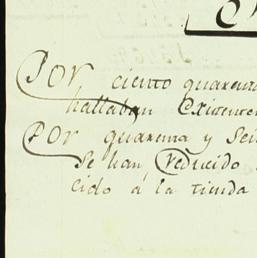 Por ciento quarenta
hallaban Existente
Por quarenta y Seis
Se han reducido
cido á la tienda